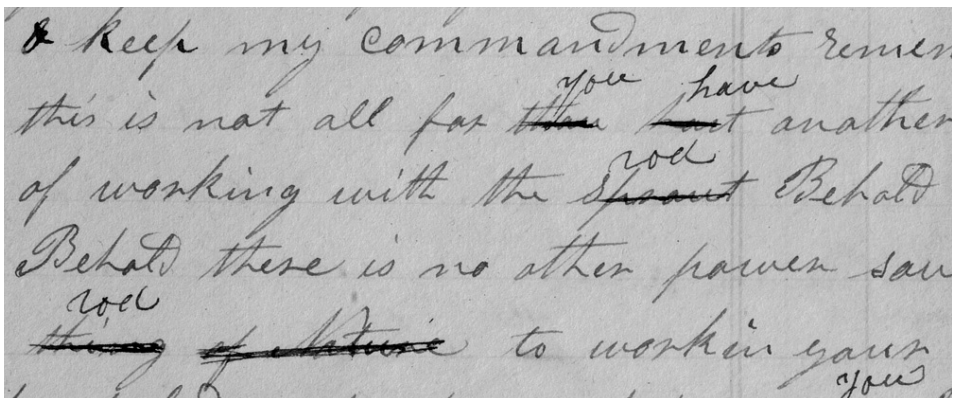 & keep my commandments remem
you have
this is not all for thou hast another
rod
of working with the sprout Behold
Behold there is no other power sav
rod
thing of Nature to work in your
you